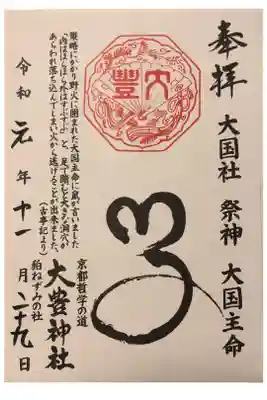 奉拝
大国社 祭神 大国主命
大豐
策略にかかり野火に囲まれた大国主命に鼠が言いました
「内はほらほら外はすぶすぶ」と、足で踏むと大きな洞穴が
あらわれ落ち込んでしまい火から逃げることが出来ました。
(古事記より)
京都哲学の道
大豊神社
狛ねずみの社
令和元年十一月二十九日